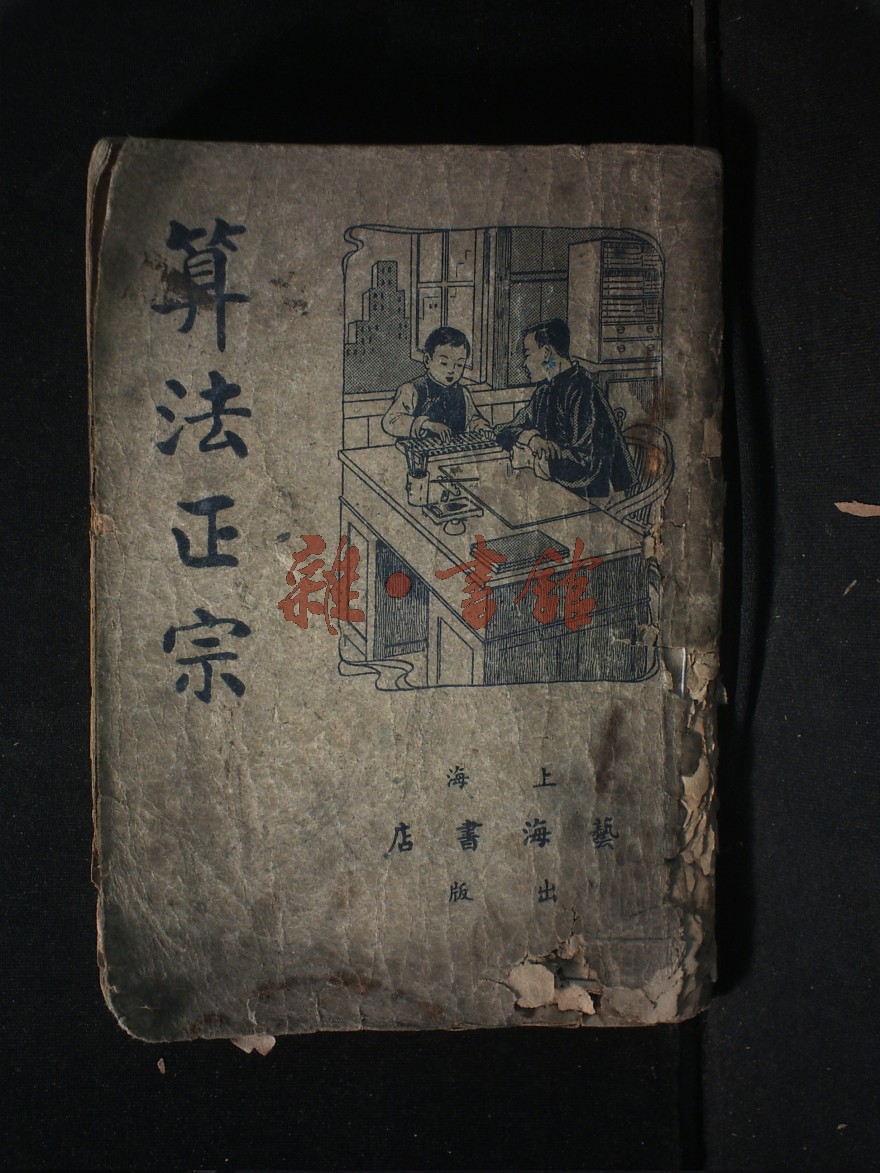 算法正宗
上海
藝海書店
出版
雜·書館